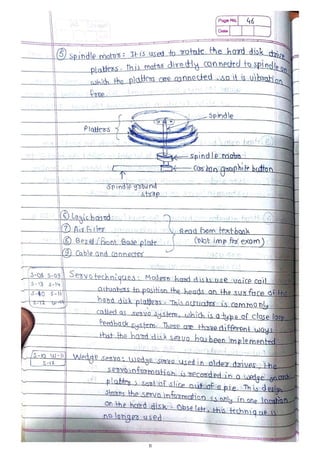 Page No. 46
Date
⑤ Spindle motor: It is used to rotate the hard disk drive
platters. This motor directly connected to spindle on
which the platters are connected, so it is vibration
free.
Spindle
Platters
Spindle motor
Carbon graphite button
Spindle ground
strap
⑥ Logic board
⑦ Air Filter
⑧ Bezel/Front Base plate
⑨ Cable and connector
Read from textbook
(Not imp for exam)
S-08 S-09
S-13 S-14
S-11
S-12
Servo techniques: Modern hard disks use voice coil
actuators to position the heads on the surface of the
hard disk platters. This actuator is commonly
called as servo system, which is a type of close loop
feedback system. There are three different ways
that the hard disk servo has been implemented
S-10 W-11
Wedge servo: Wedge servo used in older drives, the
servo information is recorded in a wedge on each
platter; sort of slice out of a pie. This design
stores the servo information is only in one location
on the hard disk. Obselete, this technique is
no longer used.